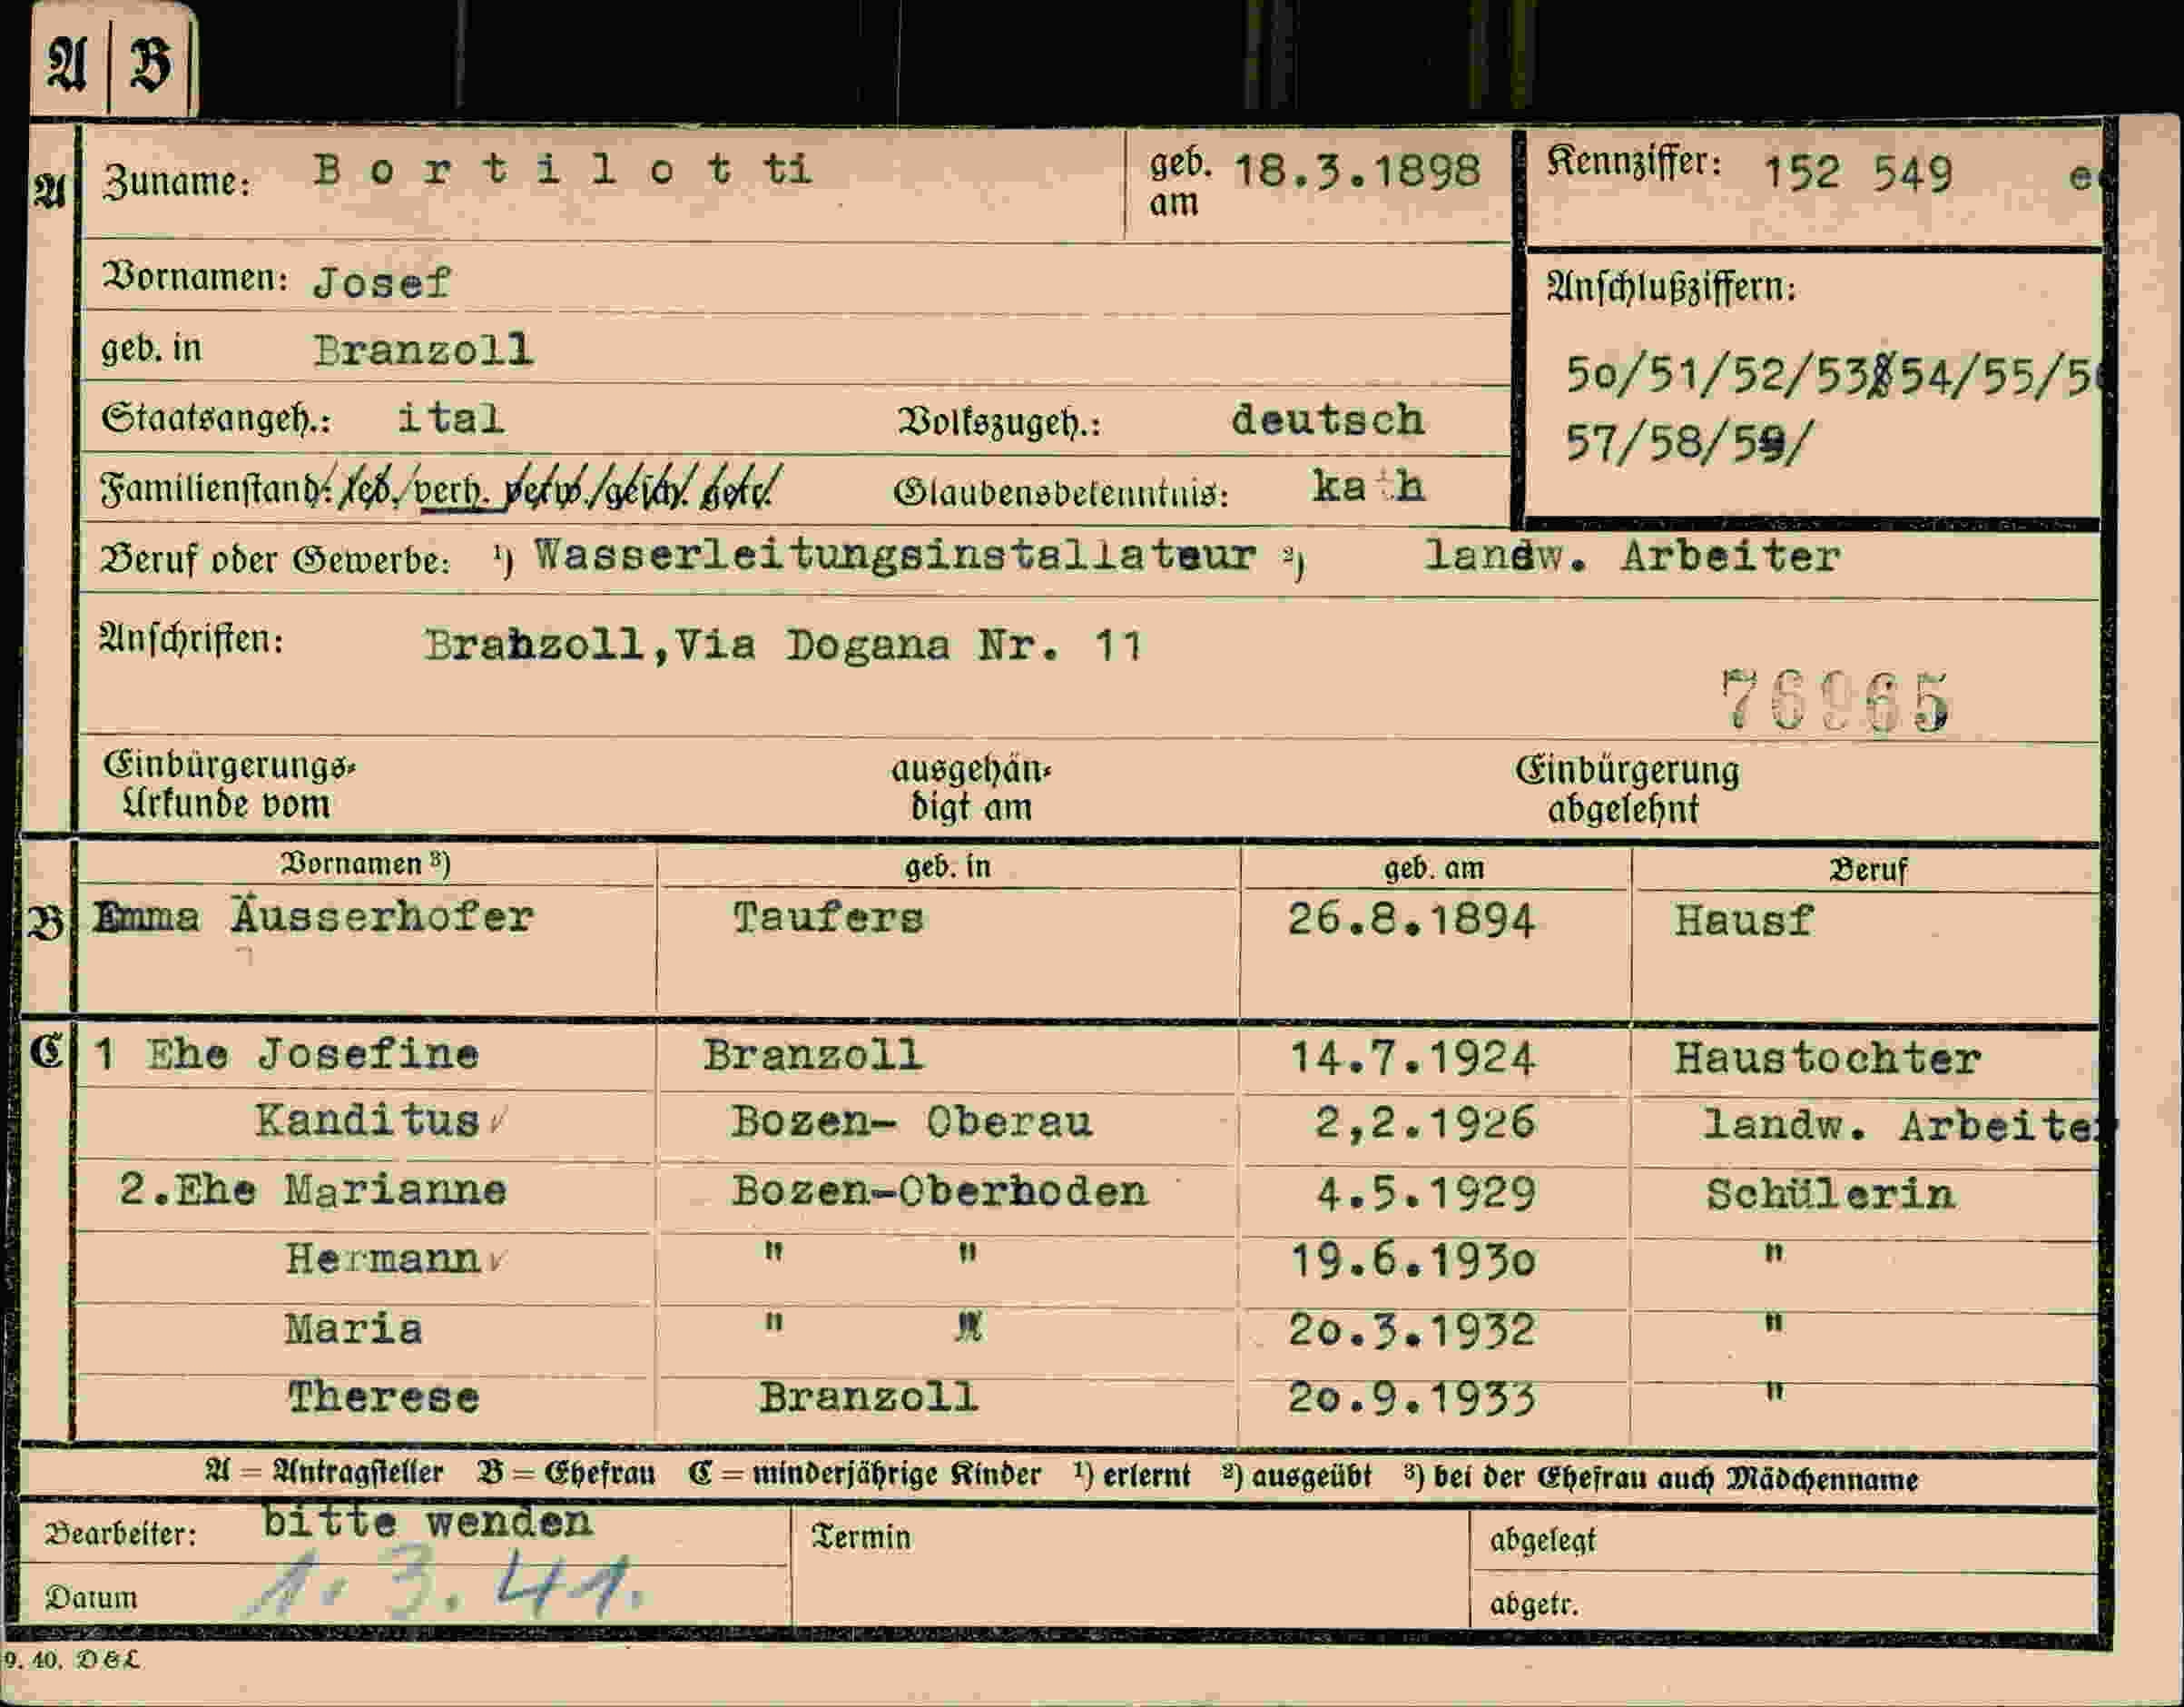 A B
A Zuname: B o r t i l o t ti geb. am 18.3.1898 Kennziffer: 152 549
Vornamen: Josef
Anschlußziffern:
geb. in Branzoll
50/51/52/53/54/55/5
Staatsangeh.: ital Volkszugeh.: deutsch
57/58/59/
Familienstand: led./verh. verw./gesch. getr. Glaubensbekenntnis: kath
Beruf oder Gewerbe: ¹) Wasserleitungsinstallateur ²) landw. Arbeiter
Anschriften: Branzoll,Via Dogana Nr. 11
76965
Einbürgerungs- ausgehän- Einbürgerung
Urkunde vom digt am abgelehnt
Vornamen ³) geb. in geb. am Beruf
B Emma Äusserhofer Taufers 26.8.1894 Hausf
C 1 Ehe Josefine Branzoll 14.7.1924 Haustochter
Kanditus Bozen- Oberau 2,2.1926 landw. Arbeiter
2.Ehe Marianne Bozen-Oberhoden 4.5.1929 Schülerin
Hermann " " 19.6.1930 "
Maria " " 20.3.1932 "
Therese Branzoll 20.9.1933 "
A = Antragsteller B = Ehefrau C = minderjährige Kinder ¹) erlernt ²) ausgeübt ³) bei der Ehefrau auch Mädchenname
Bearbeiter: bitte wenden Termin abgelegt
Datum 1. 3. 41. abgetr.
9. 40. D&L